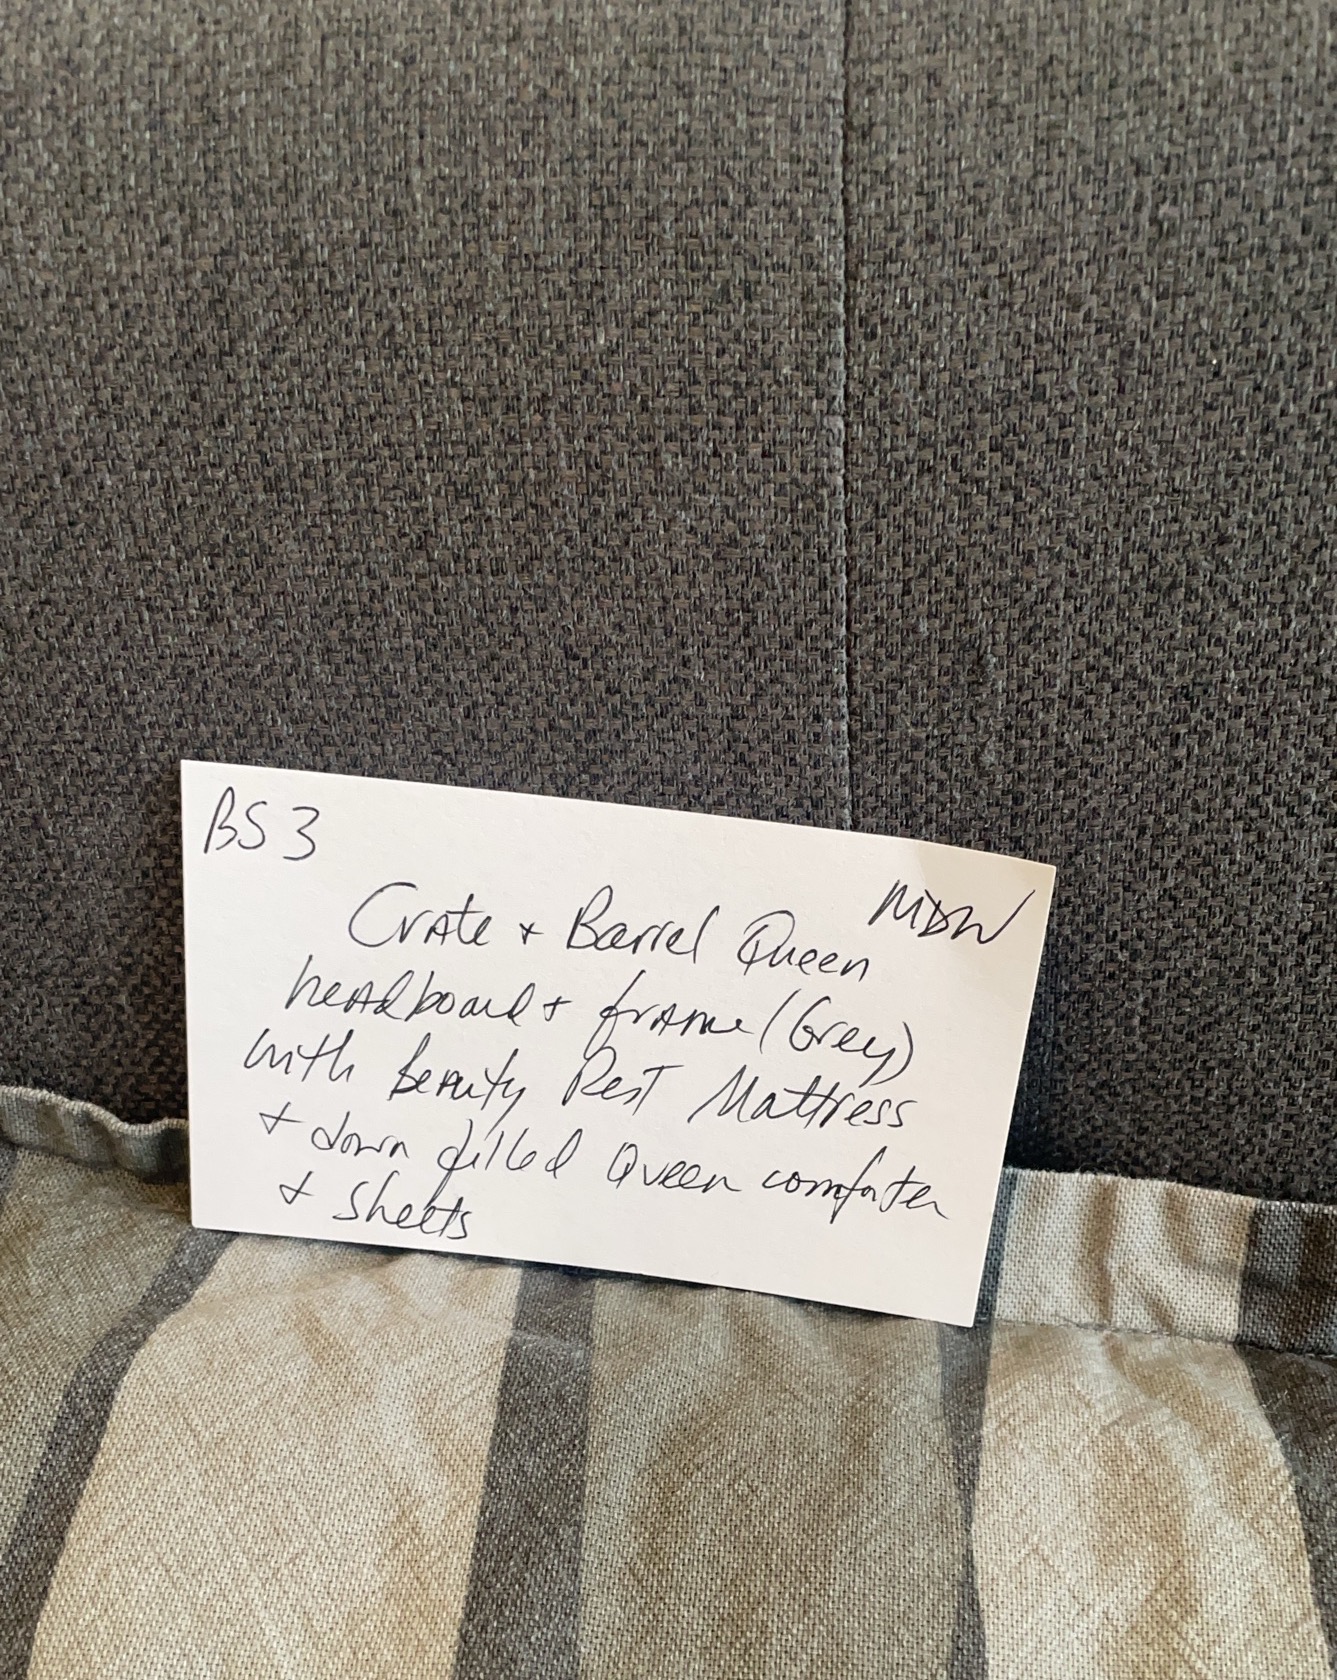 BS3
MDW
Crate + Barrel Queen
headboard + frame (Grey)
with Beauty Rest Mattress
+ down filled Queen comforter
+ sheets